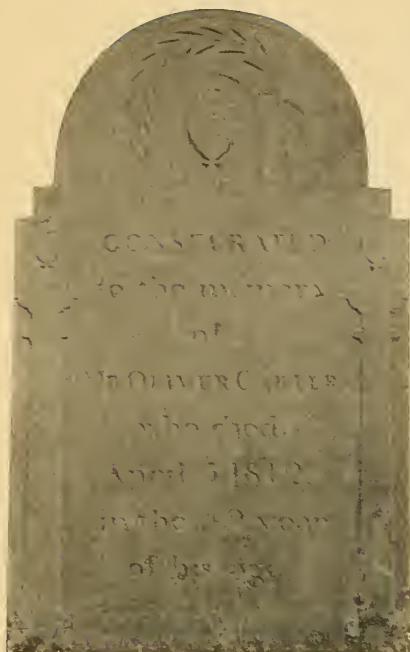 CONSECRATED
to the memory
of
Mr OLIVER
who died
April
in the year
of his age